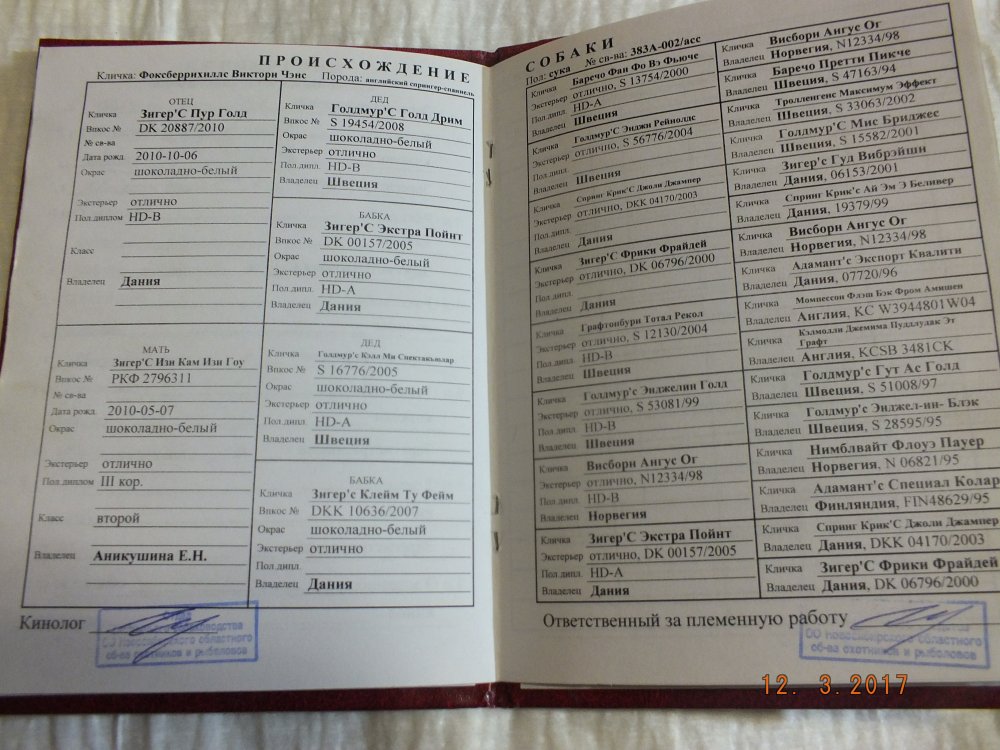 ПРОИСХОЖДЕНИЕ
Кличка: Фоксберрихиллс Виктори Чэнс Порода: английский спрингер-спаниель
ОТЕЦ
Кличка Зигер'С Пур Голд
Впкос № DK 20887/2010
№ св-ва
Дата рожд. 2010-10-06
Окрас шоколадно-белый
Экстерьер отлично
Пол.диплом HD-B
Класс
Владелец Дания
МАТЬ
Кличка Зигер'С Изи Кам Изи Гоу
Впкос № РКФ 2796311
№ св-ва
Дата рожд. 2010-05-07
Окрас шоколадно-белый
Экстерьер отлично
Пол диплом III кор.
Класс второй
Владелец Аникушина Е.Н.
ДЕД
Кличка Голдмур'С Голд Дрим
Впкос № S 19454/2008
Окрас шоколадно-белый
Экстерьер отлично
Пол.дипл. HD-B
Владелец Швеция
БАБКА
Кличка Зигер'С Экстра Пойнт
Впкос № DK 00157/2005
Окрас шоколадно-белый
Экстерьер отлично
Пол дипл. HD-A
Владелец Дания
ДЕД
Кличка Голдмур'с Кэлл Ми Спектакъюлар
Впкос № S 16776/2005
Окрас шоколадно-белый
Экстерьер отлично
Пол.дипл. HD-A
Владелец Швеция
БАБКА
Кличка Зигер'с Клейм Ту Фейм
Впкос № DKK 10636/2007
Окрас шоколадно-белый
Экстерьер отлично
Пол.дипл.
Владелец Дания
Кинолог
областного
об-ва охотников и рыболовов
СОБАКИ
Пол: сука № св-ва: 383А-002/асс
Кличка Баречо Фан Фо Вэ Фьюче
Экстерьер отлично, S 13754/2000
Пол.дипл. HD-A
Владелец Швеция
Кличка Голдмур'С Энджи Рейнолдс
Экстерьер отлично, S 56776/2004
Пол.дипл.
Владелец Швеция
Кличка Спринг Крик'С Джоли Джампер
Экстерьер отлично, DKK 04170/2003
Пол.дипл.
Владелец Дания
Кличка Зигер'С Фрики Фрайдей
Экстерьер отлично, DK 06796/2000
Пол дипл.
Владелец Дания
Кличка Графтонбури Тотал Рекол
Экстерьер отлично, S 12130/2004
Пол.дипл. HD-B
Владелец Швеция
Кличка Голдмур'с Энджелин Голд
Экстерьер отлично, S 53081/99
Пол.дипл. HD-B
Владелец Швеция
Кличка Висборн Ангус Ог
Экстерьер отлично, N12334/98
Пол дипл. HD-B
Владелец Норвегия
Кличка Зигер'С Экстра Пойнт
Экстерьер отлично, DK 00157/2005
Пол.дипл. HD-A
Владелец Дания
Кличка Висборн Ангус Ог
Владелец Норвегия, N12334/98
Кличка Баречо Претти Пикче
Владелец Швеция, S 47163/94
Кличка Тролленгенс Максимум Эффект
Владелец Швеция, S 33063/2002
Кличка Голдмур'С Мис Бриджес
Владелец Швеция, S 15582/2001
Кличка Зигер'с Гуд Вибрэйшн
Владелец Дания, 06153/2001
Кличка Спринг Крик'с Ай Эм Э Беливер
Владелец Дания, 19379/99
Кличка Висборн Ангус Ог
Владелец Норвегия, N12334/98
Кличка Адамант'с Экспорт Квалити
Владелец Дания, 07720/96
Кличка Момпессон Флэш Бэк Фром Амишен
Владелец Англия, KC W3944801W04
Кличка Кэлмолли Джемима Пуддлудак Эт Графт
Владелец Англия, KCSB 3481CK
Кличка Голдмур'с Гут Ас Голд
Владелец Швеция, S 51008/97
Кличка Голдмур'с Энджел-ин- Блэк
Владелец Швеция, S 28595/95
Кличка Нимблвайт Флоуэ Пауер
Владелец Норвегия, N 06821/95
Кличка Адамант'с Специал Колар
Владелец Финляндия, FIN48629/95
Кличка Спринг Крик'С Джоли Джампер
Владелец Дания, DKK 04170/2003
Кличка Зигер'С Фрики Фрайдей
Владелец Дания, DK 06796/2000
Ответственный за племенную работу
ОО Новосибирского областного
об-ва охотников и рыболовов
12. 3.2017